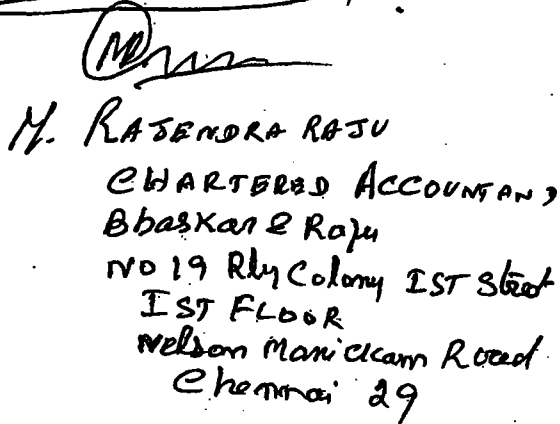 M. RAJENDRA RAJU
CHARTERED ACCOUNTANT,
Bhaskar & Raju
NO 19 Rly Colony IST Street
IST FLOOR
Nelson Manickam Road
Chennai 29